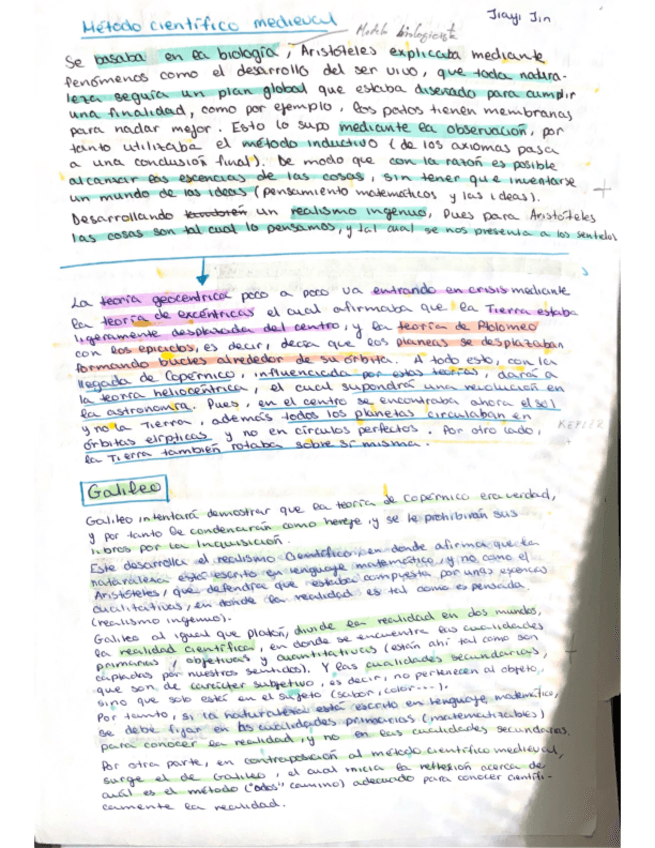 Jiayi Jin
Método científico medieval
Modelo biologicista
Se basaba en la biología, Aristóteles explicaba mediante
fenómenos como el desarrollo del ser vivo, que toda natura-
leza seguía un plan global que estaba diseñado para cumplir
una finalidad, como por ejemplo, los patos tienen membranas
para nadar mejor. Esto lo supo mediante la observación, por
tanto utilizaba el método inductivo (de los axiomas pasa
a una conclusión final). De modo que con la razón es posible
alcanzar las escencias de las cosas, sin tener que inventarse
un mundo de las ideas (pensamiento matemáticos y las ideas).
Desarrollando un realismo ingenuo, Pues para Aristóteles
las cosas son tal cual lo pensamos, y tal cual se nos presenta a los sentidos
La teoría geocéntrica poco a poco va entrando en crisis mediante
la teoría de excéntricas el cual afirmaba que la Tierra estaba
ligeramente desplazada del centro, y la teoría de Ptolomeo
con los epiciclos, es decir, decía que los planeas se desplazaban
formando bucles alrededor de su órbita. A todo esto, con la
llegada de Copérnico, influenciada por estas teorías, dará a
la teoría heliocéntrica, el cual supondrá una revolución en
la astronomía. Pues, en el centro se encontraba ahora el sol
y no la Tierra, además todos los planetas circulaban en
órbitas elípticas y no en círculos perfectos. Por otro lado,
KEPLER
la Tierra también rotaba sobre sí misma.
Galileo
Galileo intentará demostrar que la teoría de copérnico era verdad,
y por tanto le condenarán como hereje y se le prohibirán sus
libros por la Inquisición.
Este desarrolla el realismo científico, en donde afirma que la
naturaleza está escrito en lenguaje matemático, y no como el
Aristóteles, que defendía que estaba compuesta por unas esencias
cualitativas, en donde la realidad es tal como es pensada
(realismo ingenuo).
Galileo al igual que platón, divide la realidad en dos mundos,
la realidad científica, en donde se encuentra las cualidades
primarias y objetivas y cuantitativas (están ahí tal como son
captadas por nuestros sentidos). Y las cualidades secundarias,
que son de carácter subjetivo, es decir, no pertenecen al objeto,
sino que solo está en el sujeto (sabor, color---).
Por tanto, si la naturaleza está escrito en lenguaje matemático,
se debe fijar en las cualidades primarias (matematizables)
para conocer la realidad, y no en las cualidades secundarias.
Por otra parte, en contraposición al método científico medieval,
surge el de Galileo, el cual inicia la reflexión acerca de
cuál es el método ("odos" camino) adecuado para conocer científi-
camente la realidad.